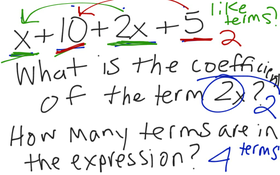 like terms?
x + 10 + 2x + 5 2
What is the coefficient
of the term 2x? 2
How many terms are in
the expression? 4 terms